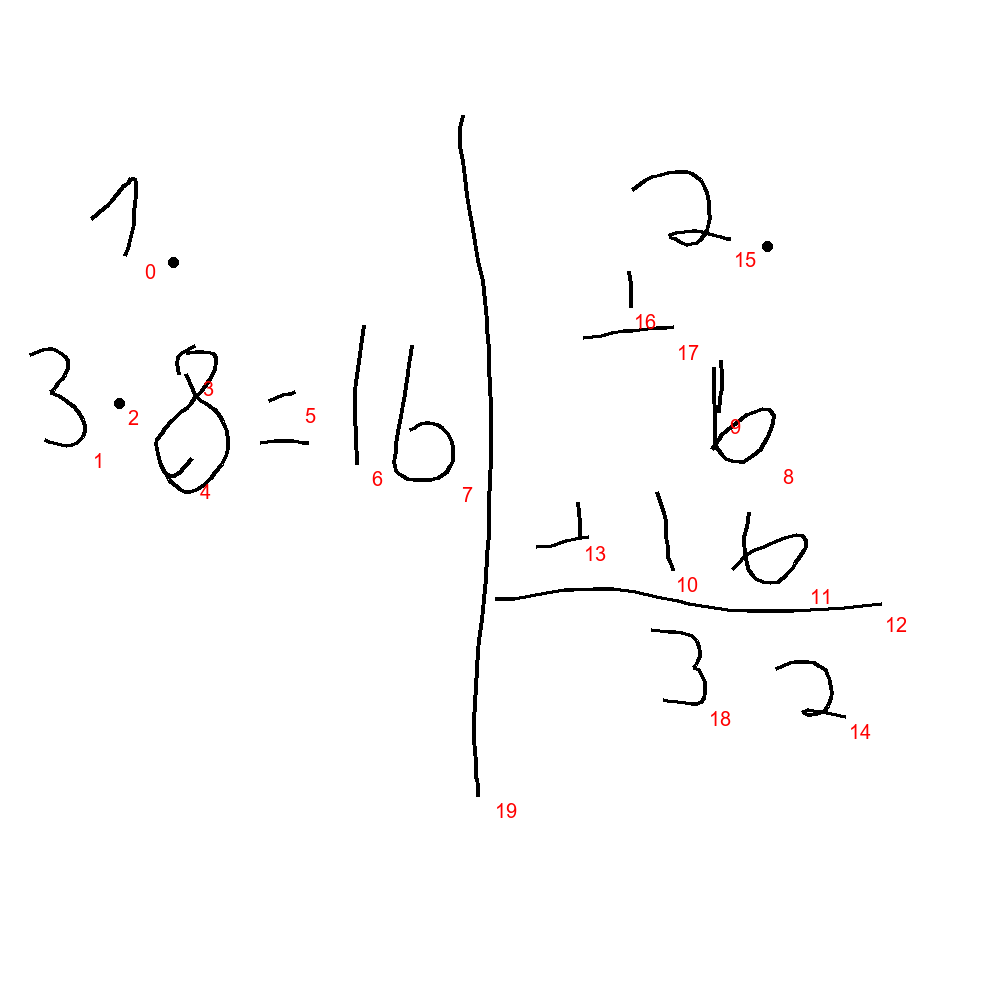 1.
0
3 · 8 = 16
1 2 3 4 5 6 7
2.
15
1
16 17
16
9 8
+ 16
13 10 11
12
32
18 14
19